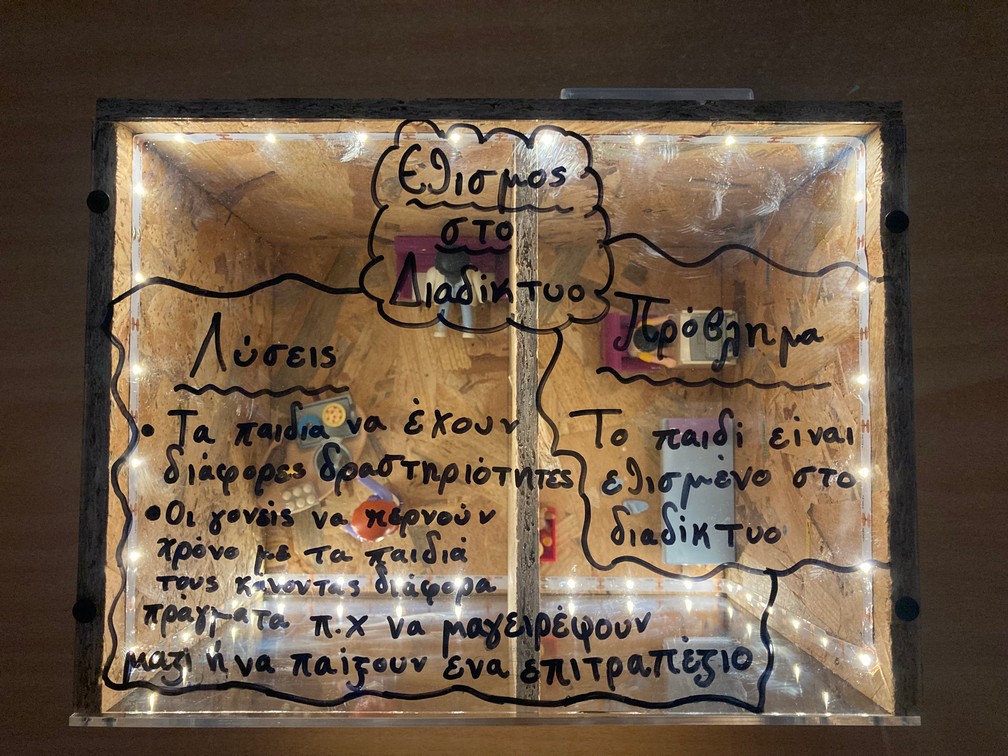 Εθισμος
στο
Διαδίκτυο
Λύσεις
• Τα παιδία να έχουν
διάφορες δραστηριότητες
• Οι γονείς να περνούν
χρόνο με τα παιδιά
τους κάνοντας διάφορα
πράγματα π.χ να μαγειρέψουν
μαζι ή να παίξουν ένα επιτραπέζιο
Πρόβλημα
Το παιδί είναι
εθισμένο στο
διαδίκτυο